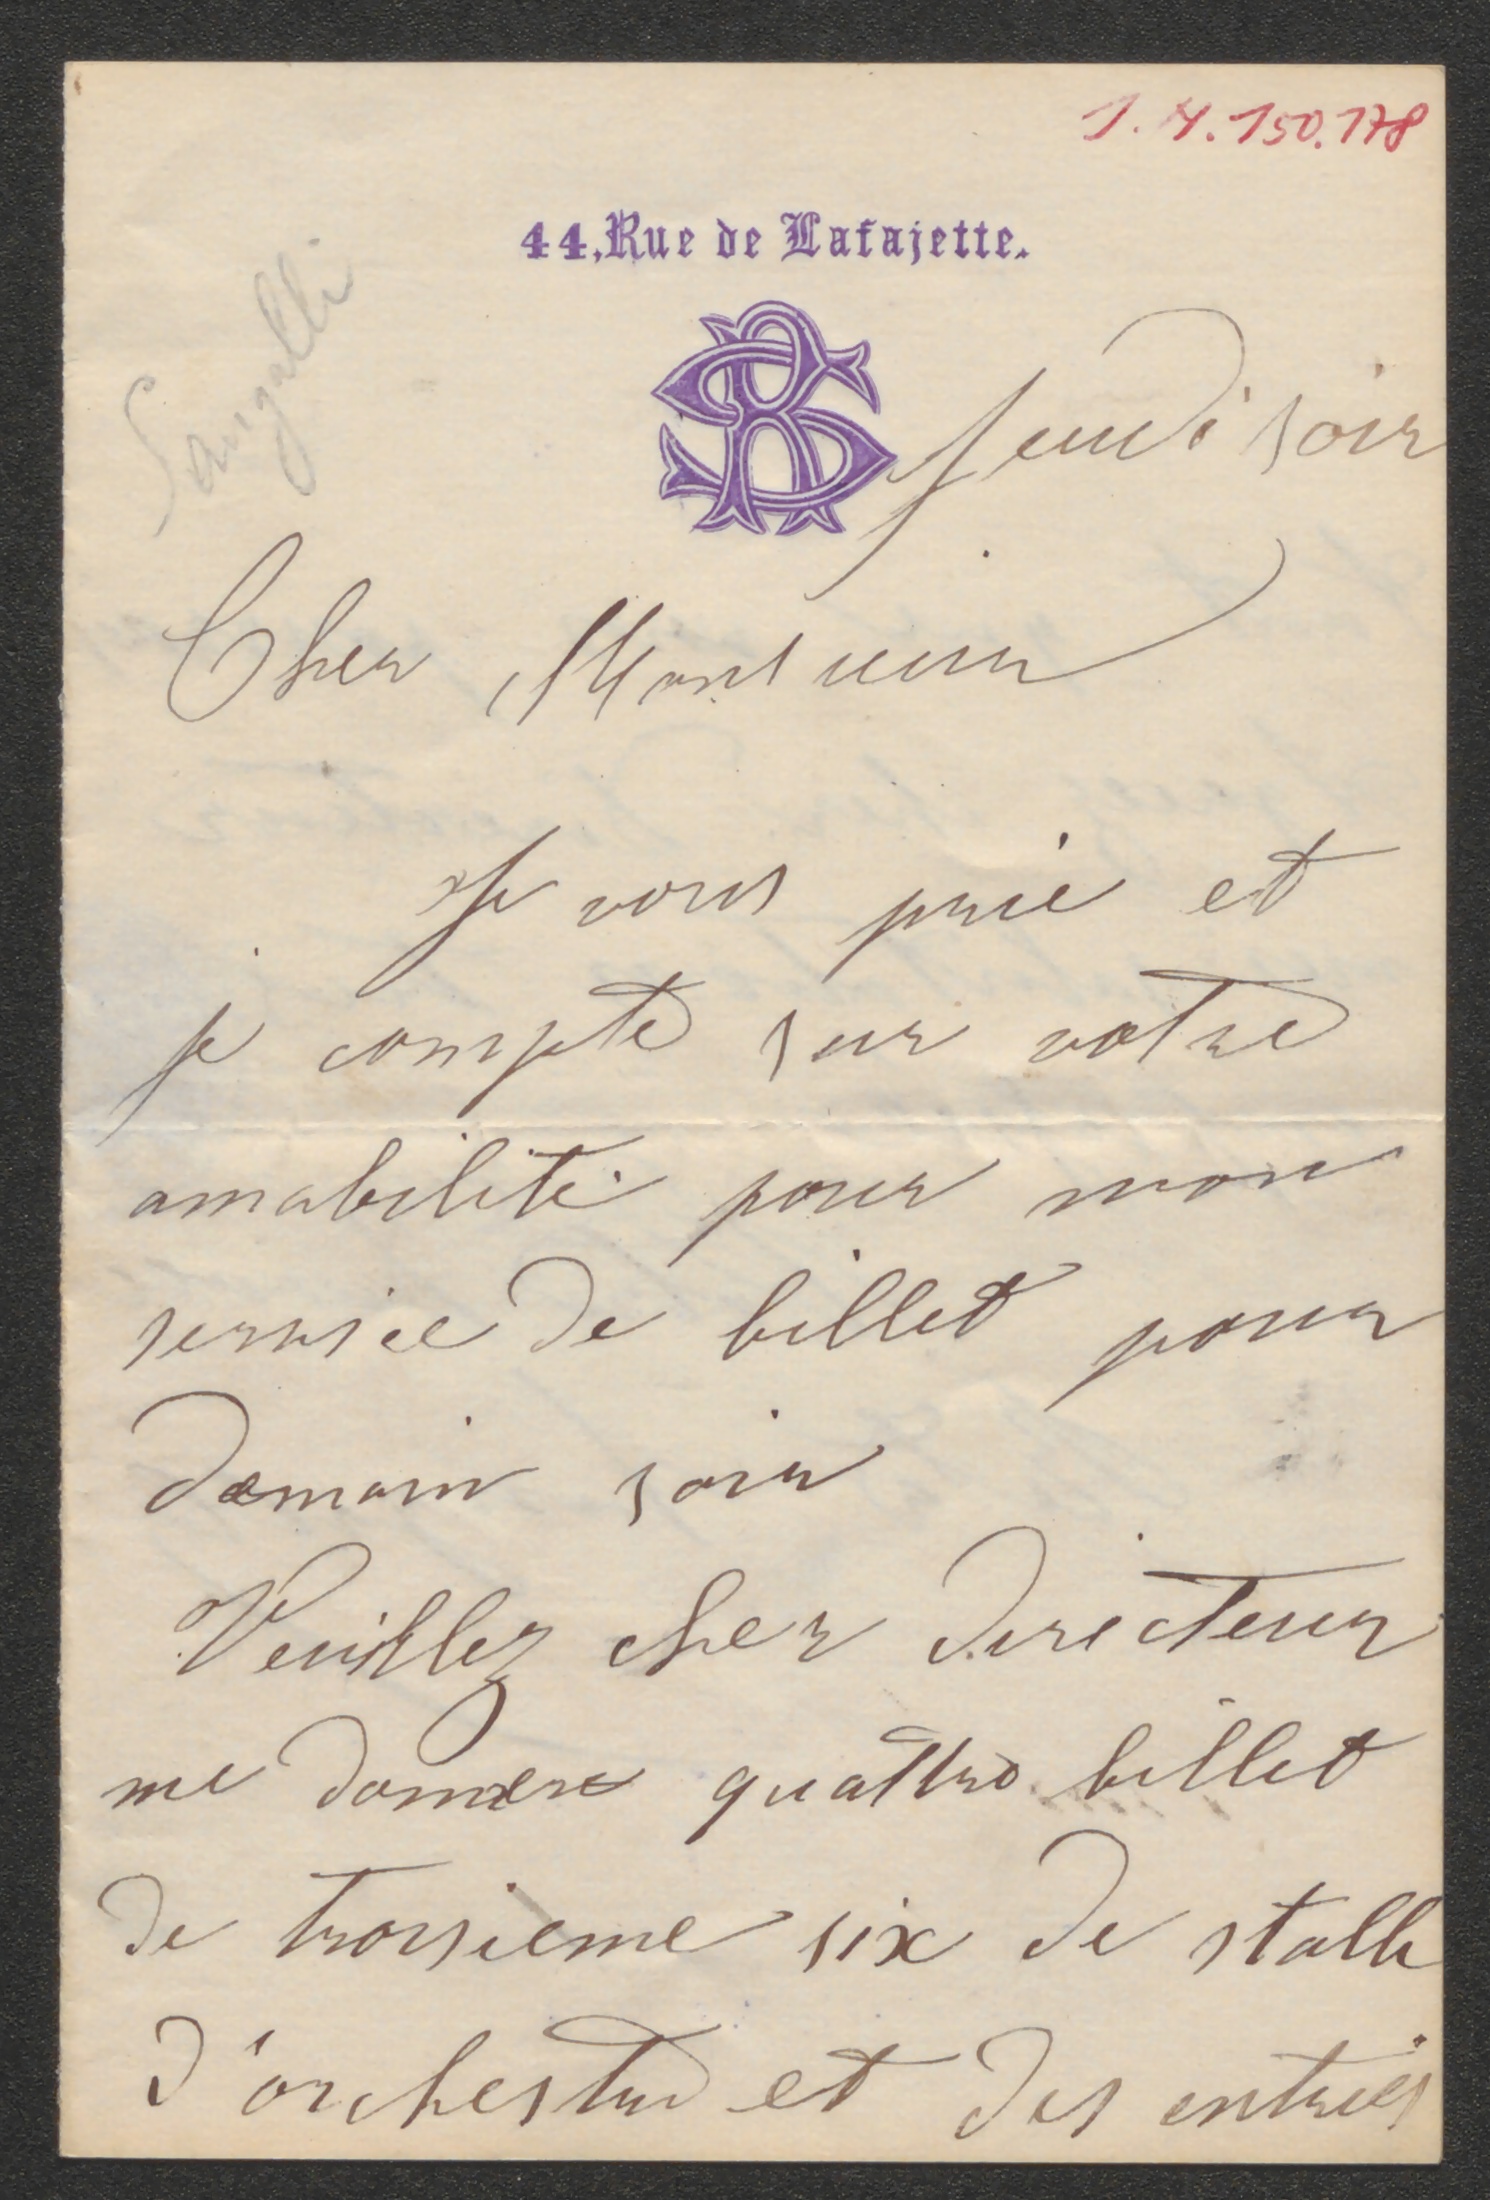 1.N.150.178
44, Rue de Lafajette.
Sangalli
RS
Jeudi soir
Cher Monsieur
Je vous prie et
je compte sur votre
amabilité pour mon
service de billet pour
demain soir
Veuillez cher directeur
me donner quattro billet
de troisieme six de stalle
d'orchestre et des entrées